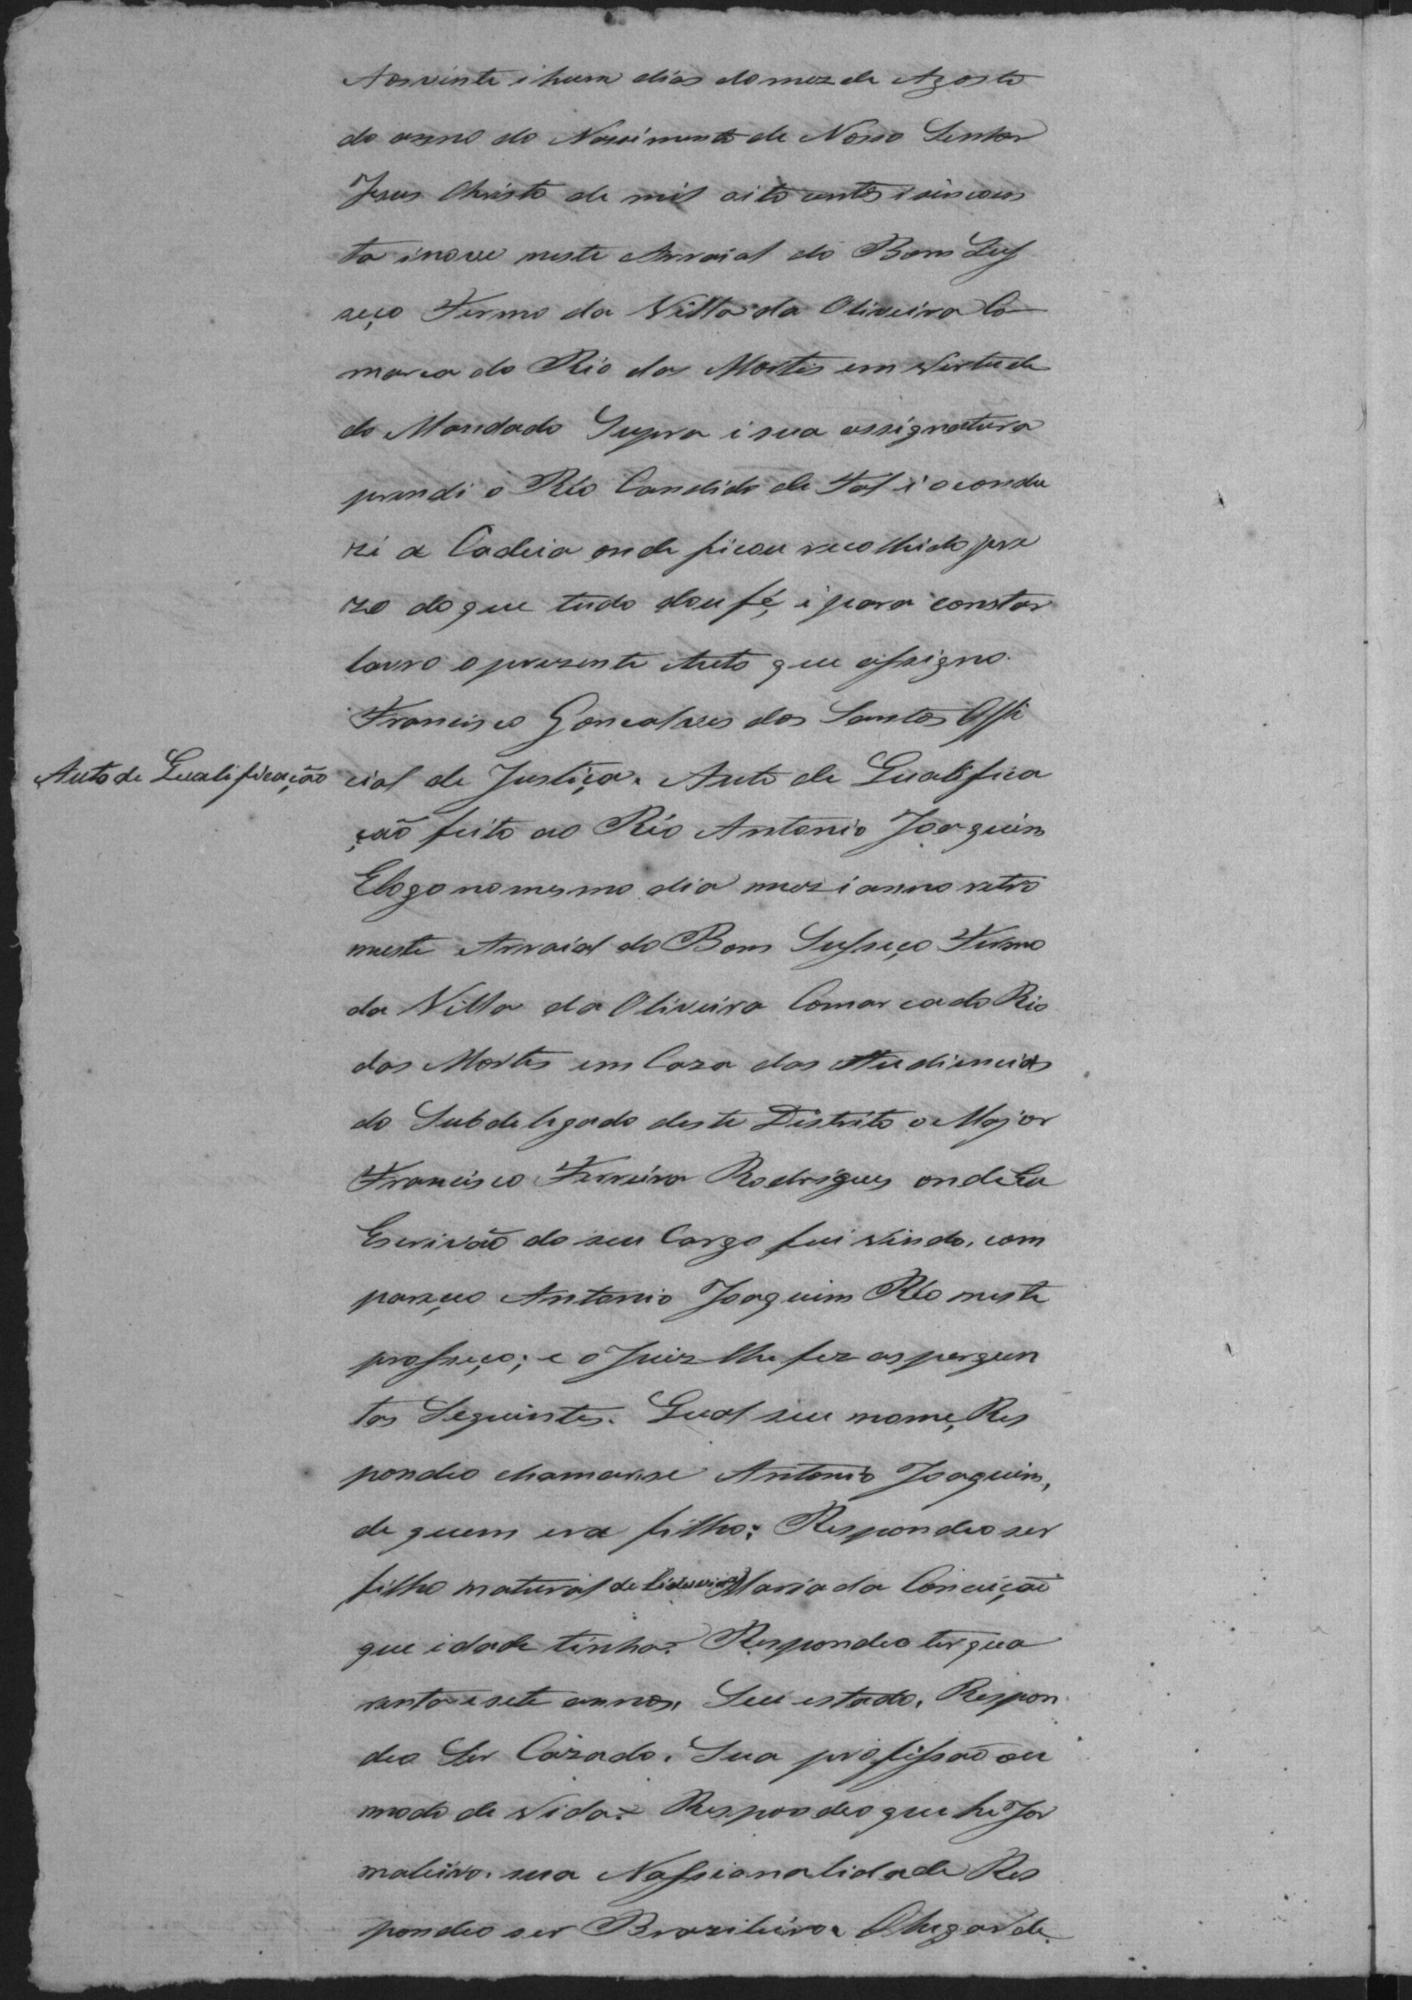 Aos vinte i hum dias do mez de Agosto
do anno do Nascimento de Nosso Senhor
Jesus Christo de mil oito centos i sincoen
ta i nove neste Arraial do Bom Suf
seço Termo da Villa da Oliveira Co
marca do Rio das Mortes em vertude
do Mandado Supra i sua assignatura
prendi o Réo Candido de Tal i o condu
zi a Cadeia onde ficou recolhido pre
zo do que tudo dou fé, i para constar
lavro o prezente Auto que assigno.
Francisco Goncalves dos Santos Offi
Auto de Qualificação
cial de Justiça. Auto de Qualifica
ção feito ao Réo Antonio Joaquim
E logo no mesmo dia mez i anno retro
neste Arraial do Bom Sufseço Termo
da Villa da Oliveira Comarca do Rio
das Mortes em Caza das Audiencias
do Subdelegado deste Distrito o Major
Francisco Ferreira Rodrigues onde Eu
Escrivão do seu Cargo fui vindo, com
pareceo Antonio Joaquim Réo neste
professo; e o Juiz lhe fez as pergun
tas Seguintes. Qual seu nome, Res
pondeo chamarse Antonio Joaquim,
de quem era filho: Respondeo ser
filho natural de Liduvina Maria da Conceição
que idade tinha? Respondeo ter qua
renta e sete annos, Seu estado, Respon
deo Ser Cazado. Sua profissão ou
modo de vida? Respondeo que he Jor
naleiro. sua Nassionalidade Res
pondeo ser Brazileiro. O lugar de